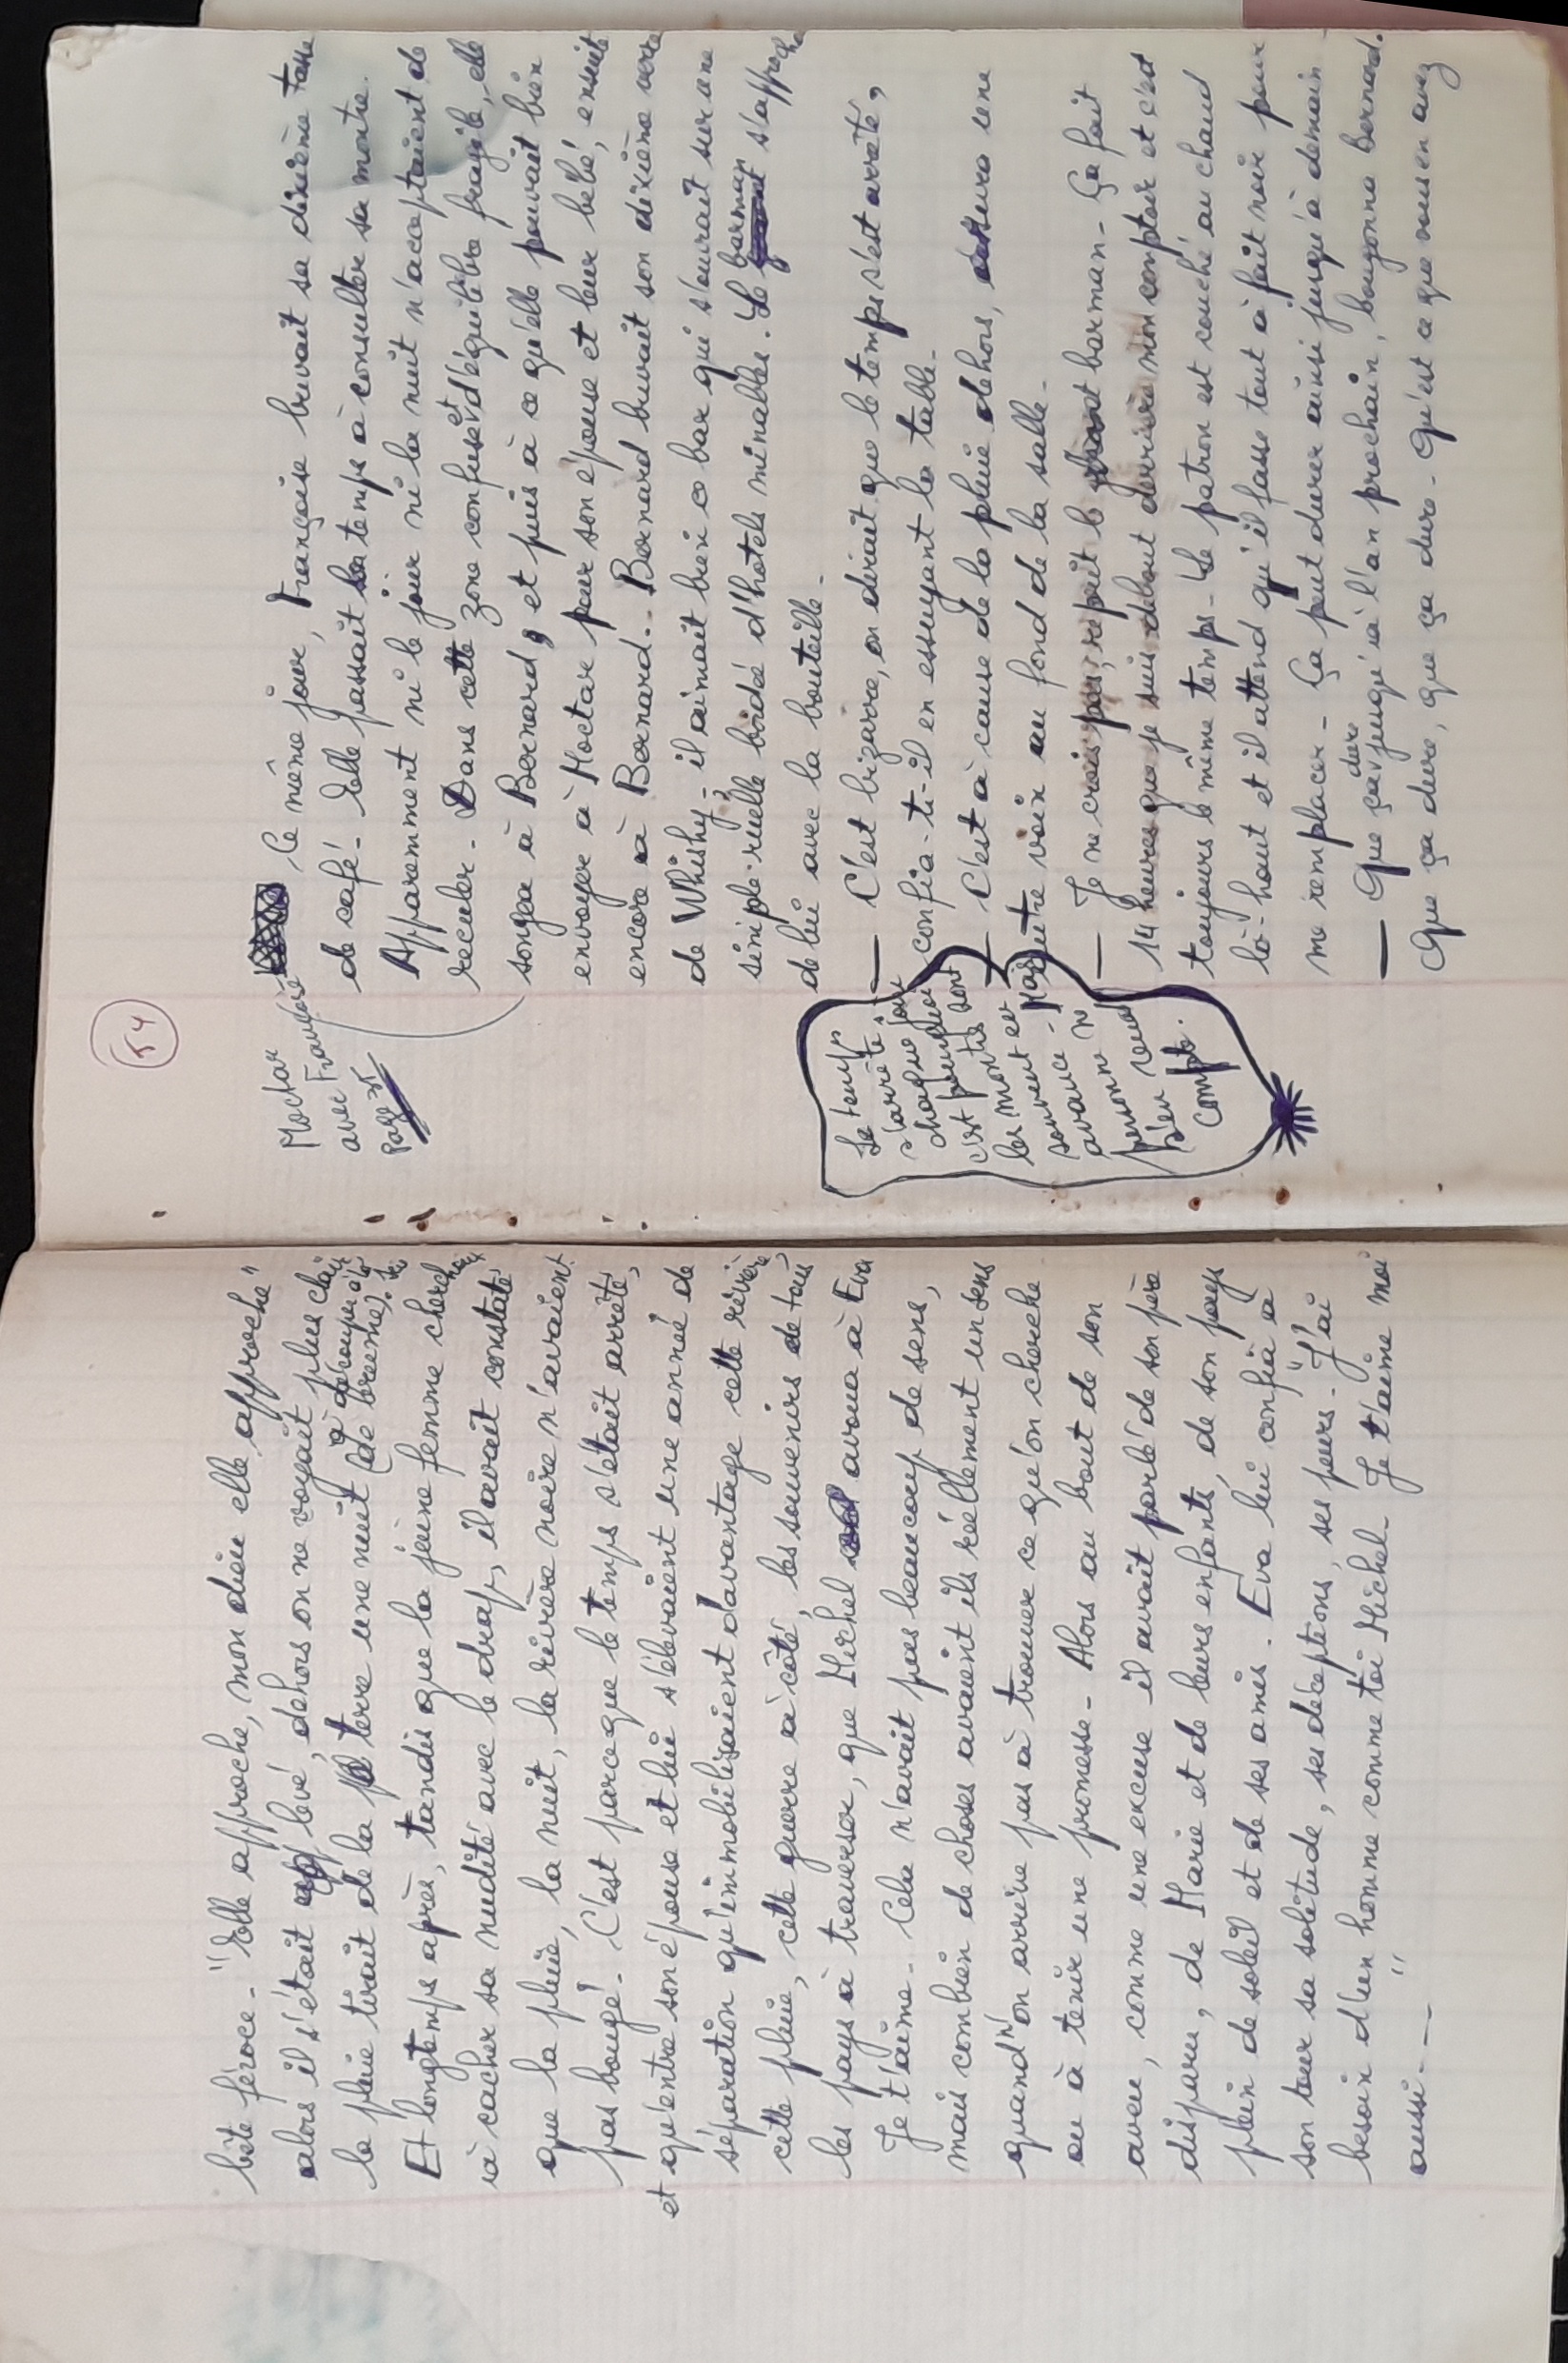 bête féroce - "Elle approche, mon dieu elle approche"
alors il s'était levé, dehors on ne voyait plus clair
la pluie tirait de la terre une nuit (à découper à la
de brume). 
Et longtemps après, tandis que la jeune femme cherchait
à cacher sa nudité avec le drap, il avait constaté
que la pluie, la nuit, la rivière noire n'avaient
pas bougé. C'est parceque le temps s'était arrêté,
et qu'entre son épouse et lui s'élevaient une année de
séparation qu'immobilisaient davantage cette rivière,
cette pluie, cette guerre à côté, les souvenirs de tous
les pays à traverser, que Michel avoua à Eva
Je t'aime - Cela n'avait pas beaucoup de sens,
mais combien de choses avaient ils réellement un sens
quand on n'arrive pas à trouver ce qu'on cherche
ou à tenir une promesse - Alors au bout de son
aveu, comme une excuse il avait parlé de son père
disparu, de Marie et de leurs enfants, de son pays
plein de soleil et de ses amis. Eva lui confia à
son tour sa solitude, ses déceptions, ses peurs - "J'ai
besoin d'un homme comme toi Michel - Je t'aime moi
aussi - - "
54
Moctar
avec Françoise
page 35
le même jour, Françoise buvait sa dixième tasse
de café - Elle passait son temps à consulter sa montre.
Apparemment ni le jour ni la nuit n'acceptaient de
reculer - Dans cette zone confuse et d'équilibre fragile, elle
songea à Bernard, et puis à ce qu'elle pouvait bien
envoyer à Moctar pour son épouse et leur bébé, ensuite
encore à Bernard.. Bernard buvait son dixième verre
de Whisky - il aimait bien ce bar qui s'ouvrait sur une
simple ruelle bordée d'hotels minables. Le barman s'approcha
de lui avec la bouteille -
— C'est bizarre, on dirait que le temps s'est arrêté,
confia-t-il en essuyant la table -
— C'est à cause de la pluie dehors, assura une
autre voix au fond de la salle -
— Je ne crois pas, reprit le barman - Ça fait
14 heures que je suis debout derrière mon comptoir et c'est
toujours le même temps - Le patron est couché au chaud
là-haut et il attend qu'il fasse tout à fait noir pour
me remplacer - Ça peut durer ainsi jusqu'à demain
— Que ça dure jusqu'à l'an prochain, bougonna bernard.
Que ça dure, que ça dure - Qu'est ce que vous en avez
Le temps
s'arrête
chaque jour
c'est pourquoi
les montres sont
souvent en
avance - Mais
personne ne
s'en rend
compte.